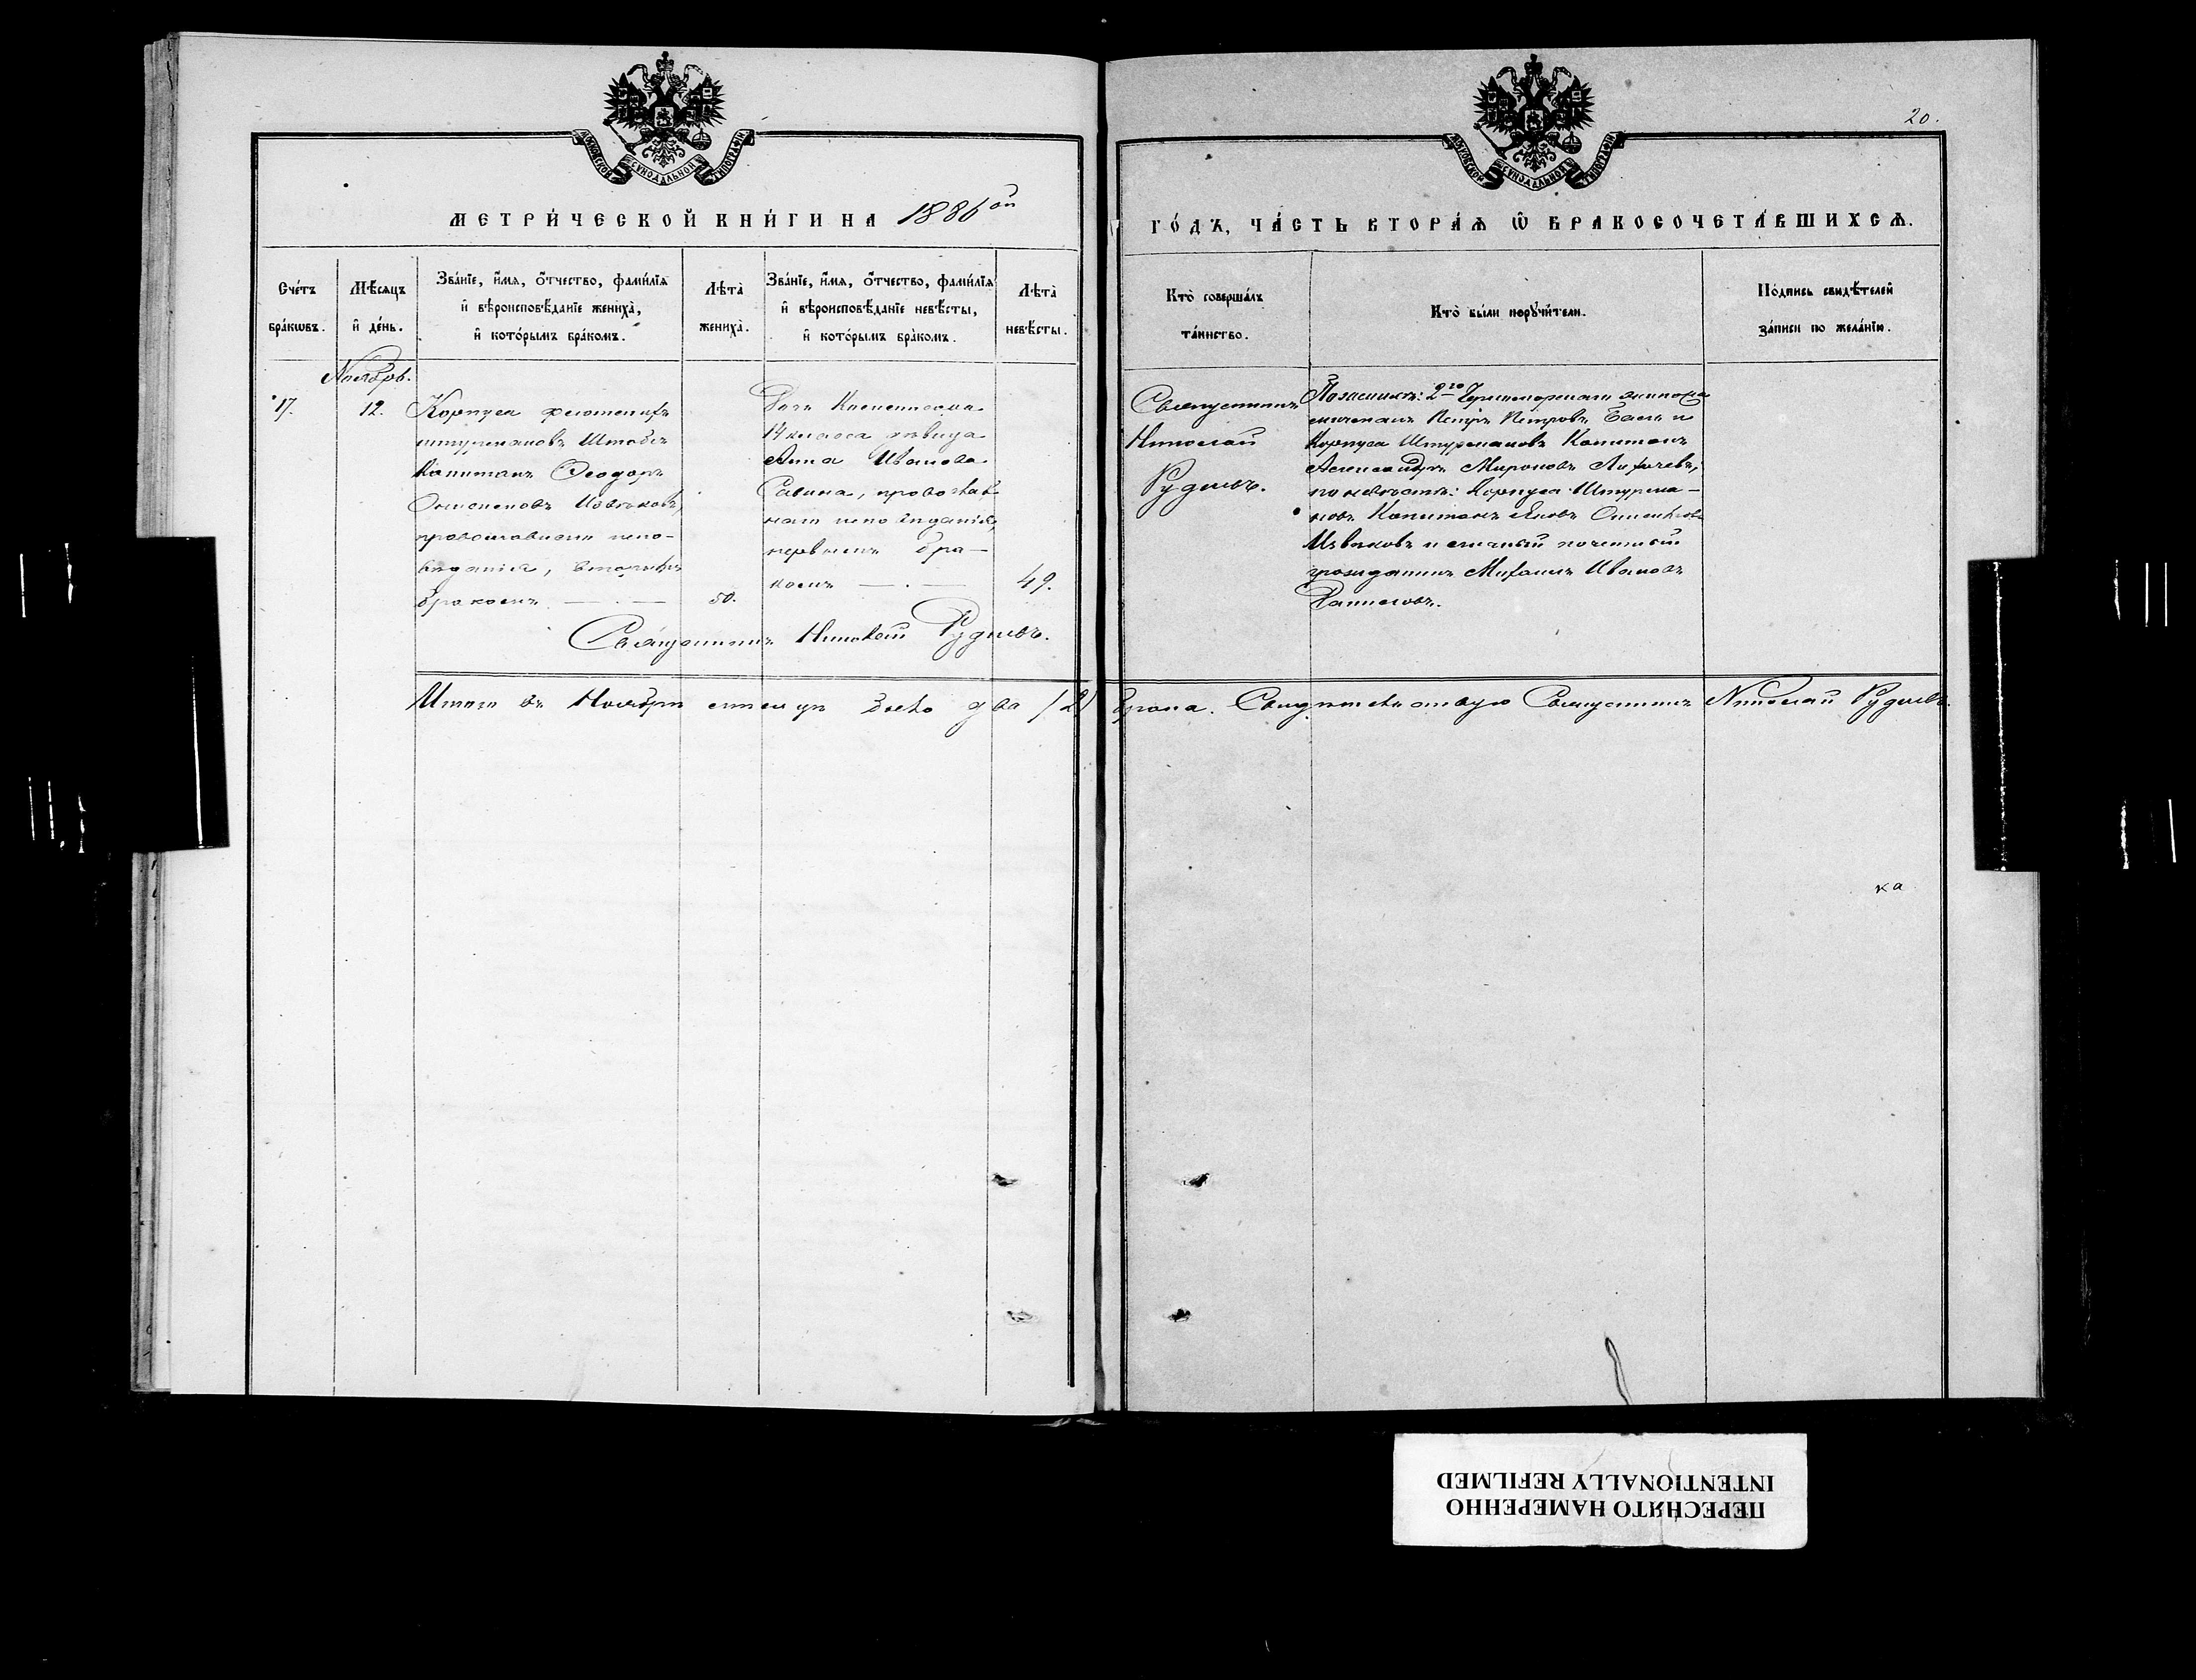 20.
МОСКОВСКОЙ СѴНОДАЛЬНОЙ ТИПОГРАФІИ
МОСКОВСКОЙ СѴНОДАЛЬНОЙ ТИПОГРАФІИ
МЕТРИ́ЧЕСКОЙ КНИ́ГИ НА 1886ой
ГО́ДЪ, ЧА́СТЬ ВТОРА́Ѧ Ѽ БРАКОСОЧЕТА́ВШИХСѦ.
Сче́тъ бра́кωвъ.
Мѣ́сяцъ и҆ де́нь.
Зва́нїе, и҆́мя, ѻ҆́тчество, фами́лїя
и҆ вѣроисповѣ́данїе жениха̀,
и҆ кото́рымъ бра́комъ.
Лѣта̀ жениха̀.
Зва́нїе, и҆́мя, ѻ҆́тчество, фами́лїя
и҆ вѣроисповѣ́данїе невѣ́сты,
и҆ кото́рымъ бра́комъ.
Лѣта̀ невѣ́сты.
Кто̀ соверша́лъ
та́инство.
Кто̀ бы́ли порꙋчи́тели.
По́дпись свидѣ́телей
за́писи по жела́нїю.
Ноябрь.
17.
12.
Корпуса флотскихъ
штурмановъ Штабсъ
Капитанъ Ѳеодоръ
Извѣковъ,
православнаго испо-
вѣданія, вторымъ
бракомъ
50.
Дочь
14 класса дѣвица
Анна Иванова
Савина, православ
наго исповѣданія,
первымъ бра-
комъ
49.
Священникъ
Николай
Рудневъ.
По женихѣ: 2го Черноморскаго экипажа
мичманъ Петръ Петровъ и
Корпуса Штурмановъ Капитанъ
Александръ Мироновъ
по невѣстѣ: Корпуса Штурма-
новъ Капитанъ Яковъ
Извѣковъ и личный почетный
гражданинъ Михаилъ Ивановъ
Даниловъ.
Священникъ Николай Рудневъ.
Итого въ Ноябрѣ мѣсяцѣ было два (2) брака. Свидѣтельствую Священникъ Николай Рудневъ.
ка
ПЕРЕСНЯТО НАМЕРЕННО
INTENTIONALLY REFILMED